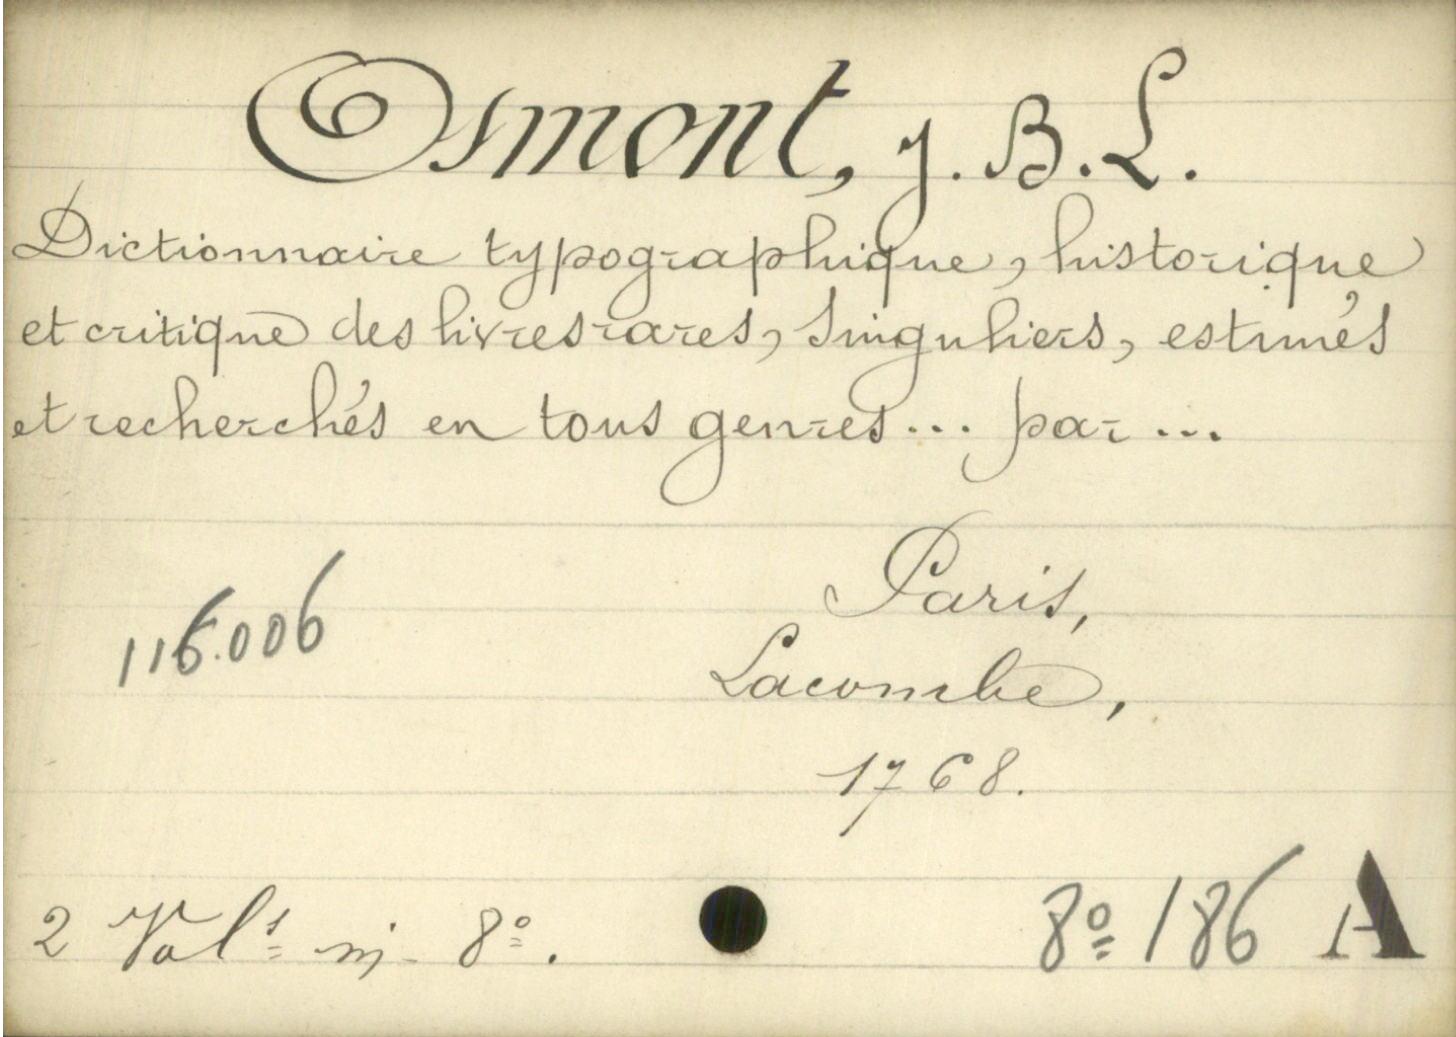 Osmont, J. B. L.
Dictionnaire typographique, historique
et critique des livres rares, singuliers, estimés
et recherchés en tous genres... par...
Paris,
116.006
Lacombe,
1768.
2 Vols in- 8º.
8º 186 A